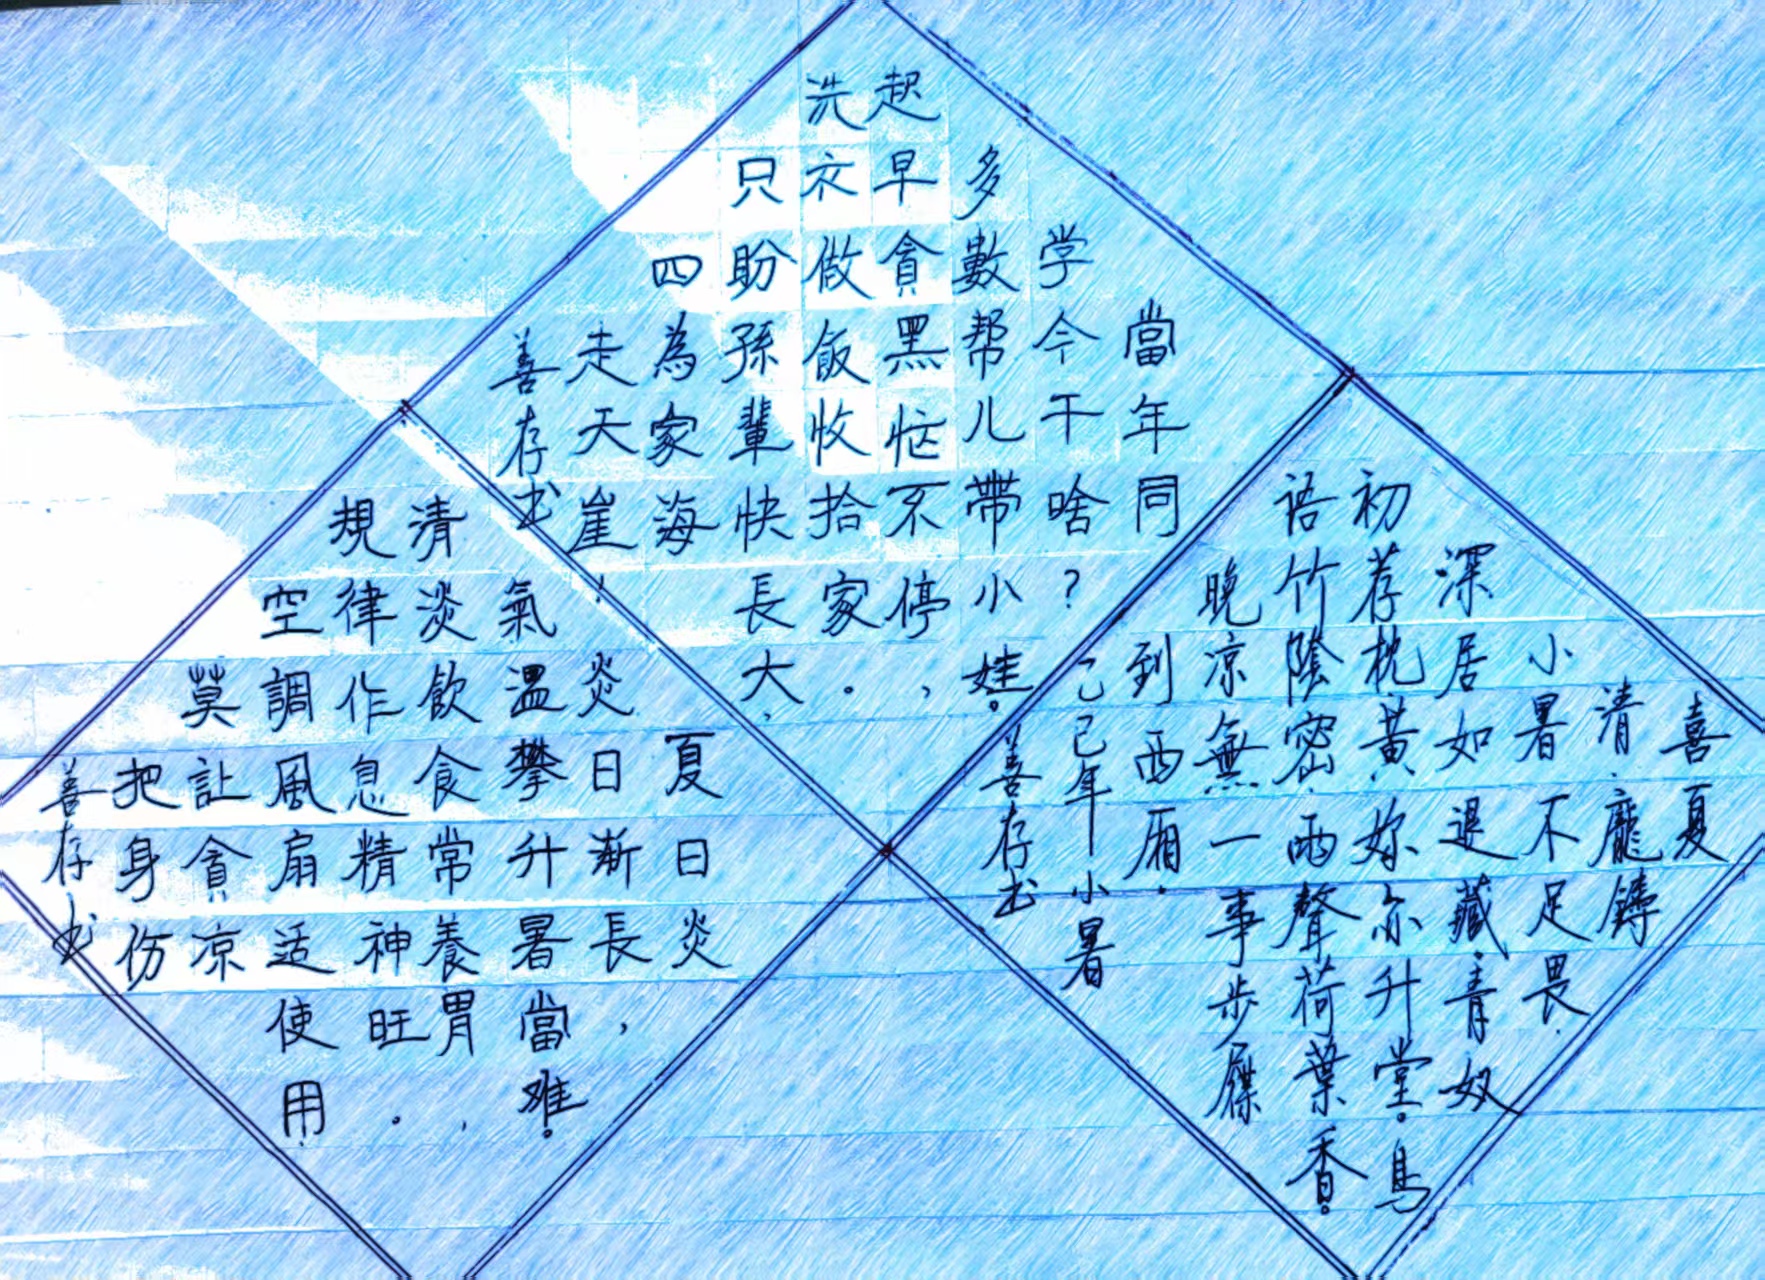 當年同
学今干啥？
多數帮儿帶小娃。
起早貪黑忙不停，
洗衣做飯收拾家。
只盼孫輩快長大，
四為家海
走天崖！
善存书
喜夏
清.龐鑄
小暑不足畏.
深居如退藏.青奴
初荐枕黃妳亦升堂。鳥
语竹陰密.雨聲荷葉香。
晚凉無一事步屧
到西厢.
乙巳年小暑
善存书
夏日炎
炎日漸長，
氣温攀升暑當难。
清淡飲食常養胃，
規律作息精神旺.
空調風扇适使用.
莫让貪凉
把身伤
善存书